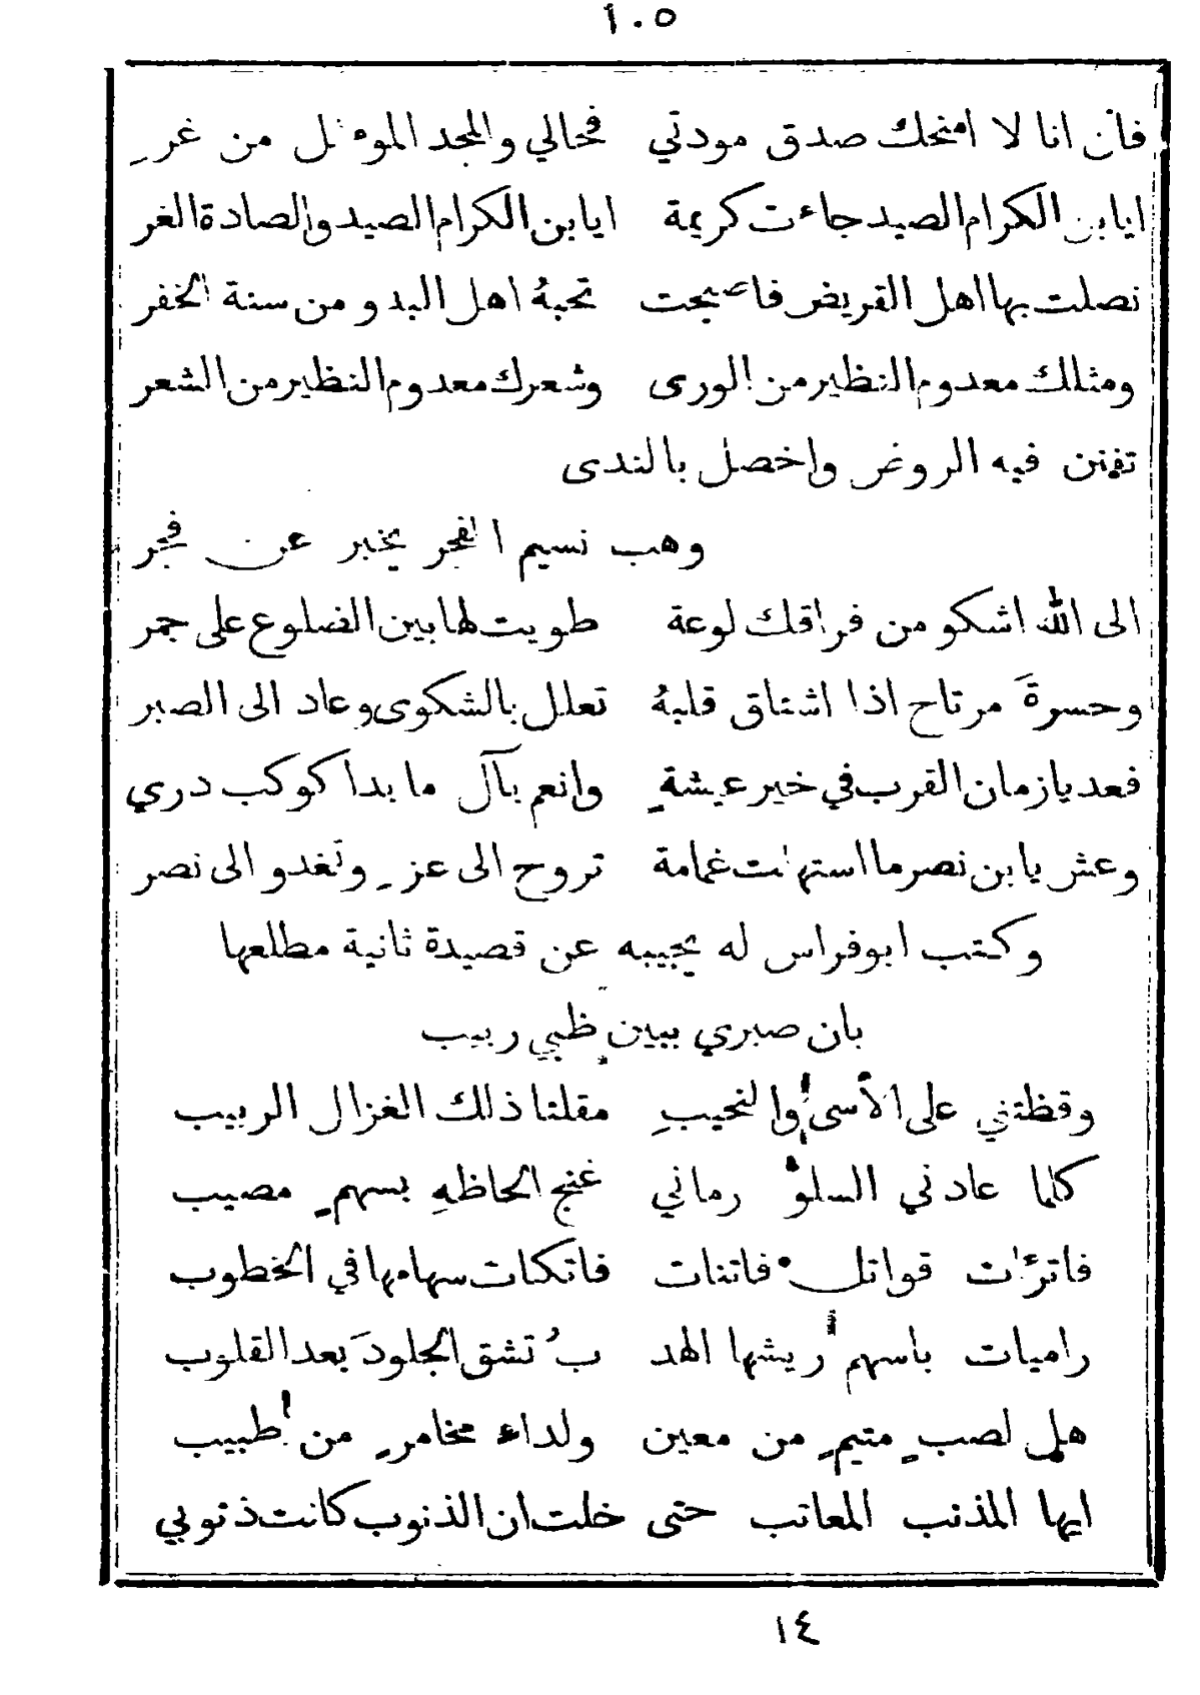 ١٠٥
فان انا لا امنحك صدق مودتي فحالي والمجد الموءثل من غرِ
ايا ابن الكرام الصيد جاءت كريمة ايا ابن الكرام الصيد والصادة الغر
نصلت بها اهل القريض فاصبحت تحبهُ اهل البدو من سنة الخفر
ومثلك معدوم النظير من الورى وشعرك معدوم النظير من الشعر
تفنن فيه الروض واخصل بالندى
وهب نسيم الفجر يخبر عن فجر
الى الله اشكو من فراقك لوعة طويت لها بين الضلوع على جمر
وحسرةَ مرتاح اذا اشتاق قلبهُ تعلل بالشكوى وعاد الى الصبر
فعد يا زمان القرب في خير عيشةٍ وانعم بآل ما بدا كوكب دري
وعش يا بن نصر ما استهلت غمامة تروح الى عزٍ وتغدو الى نصر
وكتب ابوفراس له يجيبه عن قصيدة ثانية مطلعها
بان صبري ببين ظبي ربيب
وقظتني على الأسى والنحيبِ مقلتا ذلك الغزال الربيب
كلما عادني السلوُّ رماني غنج الحاظهِ بسهمٍ مصيب
فاترات قواتل فاتنات فاتكات سهامها في الخطوب
راميات باسهم ريشها الهد بُ تشق الجلودَ بعد القلوب
هل لصبٍ متيمٍ من معين ولداء مخامرٍ من طبيب
ايها المذنب المعاتب حتى خلت ان الذنوب كانت ذنوبي
١٤